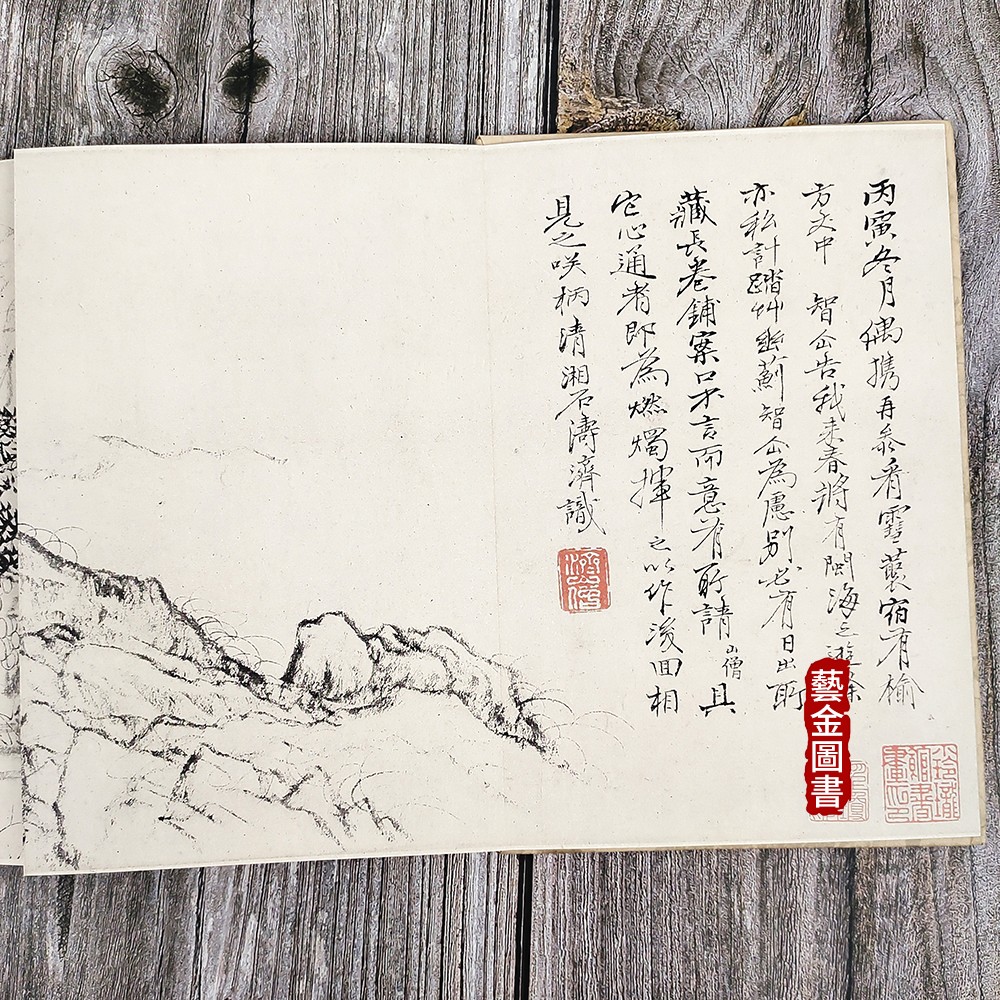 丙寅冬月偶携再來看雪蓑宿有榆
方丈中 智公告我來春將有閩海之遊余
亦私計踏艸幽薊智公為慮別必有日出所
藏長卷鋪案口不言而意有所請山僧具
它心通者即為燃燭揮之以作後回相
見之咲柄清湘石濤濟識
藝金圖書